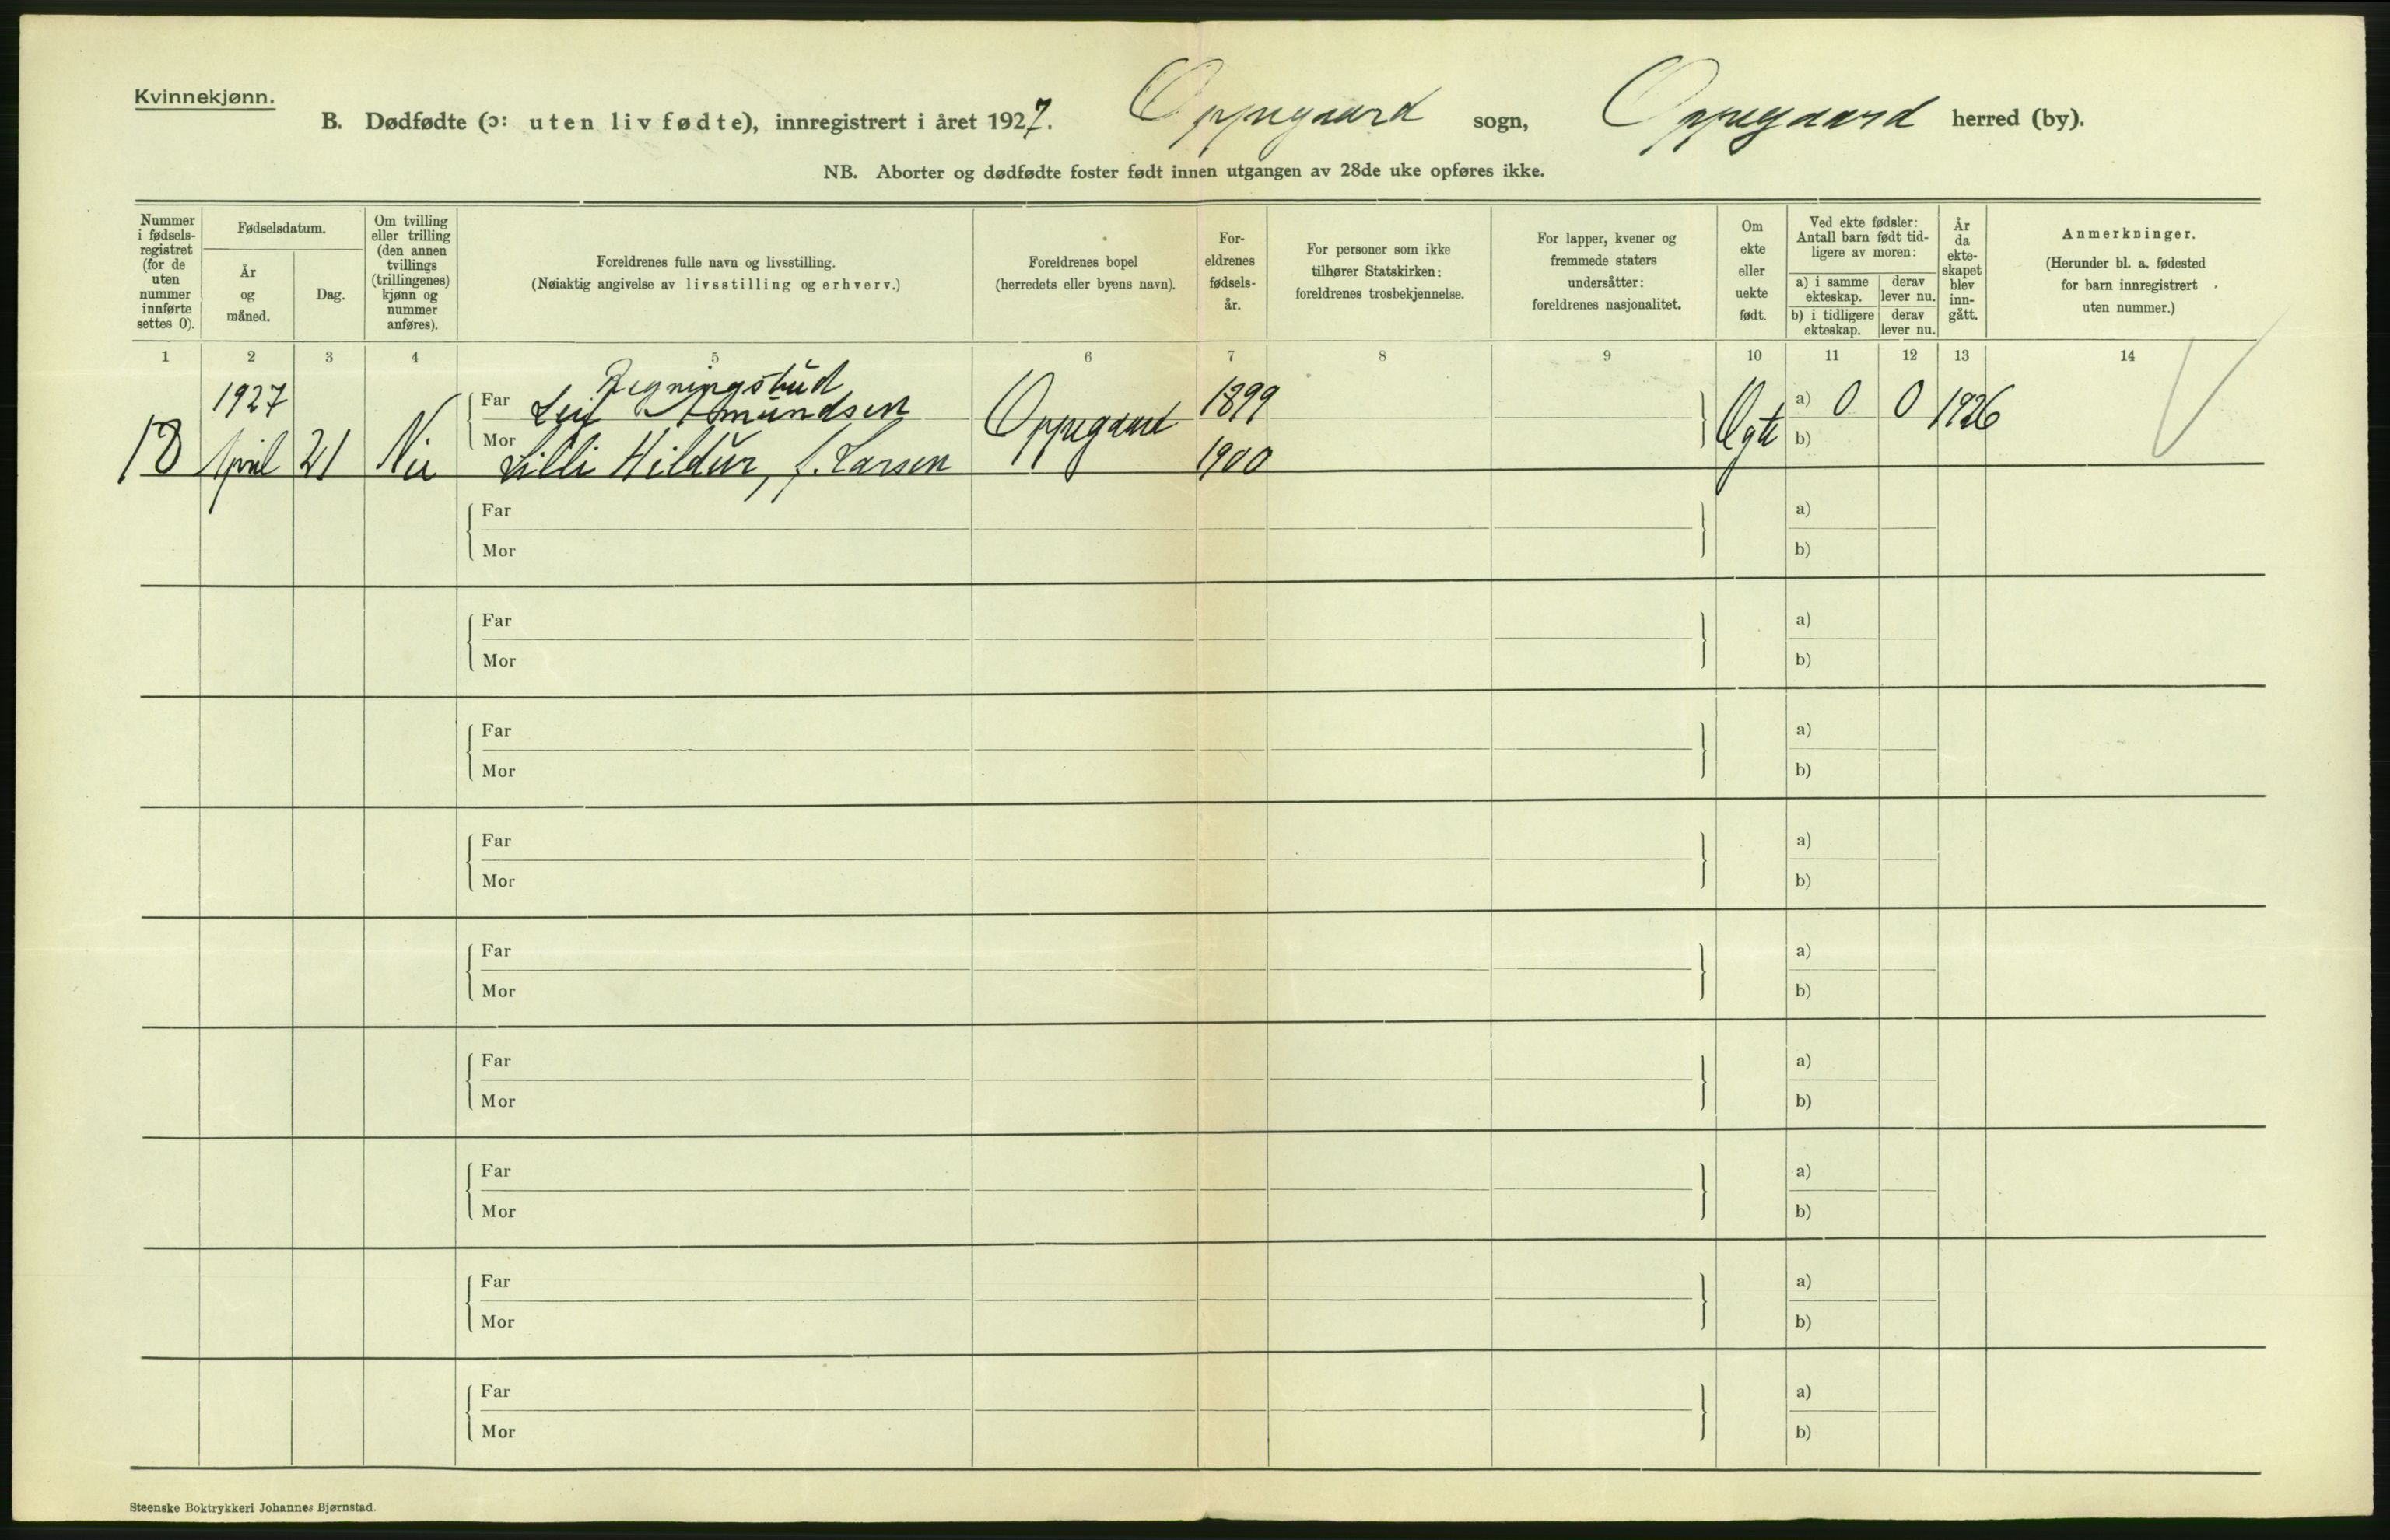 Kvinnekjønn.
B. Dødfødte (ɔ: uten liv fødte), innregistrert i året 1927. Oppegaard sogn, Oppegaard herred (by).
NB. Aborter og dødfødte foster født innen utgangen av 28de uke opføres ikke.
Nummer i fødsels-registret (for de uten nummer innførte settes 0).
Fødselsdatum.
År og måned.
Dag.
Om tvilling eller trilling (den annen tvillings (trillingenes) kjønn og nummer anføres).
Foreldrenes fulle navn og livsstilling.
(Nøiaktig angivelse av livsstilling og erhverv.)
Foreldrenes bopel
(herredets eller byens navn).
For-eldrenes fødsels-år.
For personer som ikke tilhører Statskirken: foreldrenes trosbekjennelse.
For lapper, kvener og fremmede staters undersåtter: foreldrenes nasjonalitet.
Om ekte eller uekte født.
Ved ekte fødsler: Antall barn født tid-ligere av moren:
a) i samme ekteskap. derav lever nu.
b) i tidligere ekteskap. derav lever nu.
År da ekte-skapet blev inn-gått.
Anmerkninger.
(Herunder bl. a. fødested for barn innregistrert uten nummer.)
1 2 3 4 5 6 7 8 9 10 11 12 13 14
1927 Regningsbud
Far Leif Amundsen 1899 a) 0 0 1926
18 April 21 Nei Mor Lilli Hildur, f. Larsen Oppegaard 1900 Egte b)
Far a)
Mor b)
Far a)
Mor b)
Far a)
Mor b)
Far a)
Mor b)
Far a)
Mor b)
Far a)
Mor b)
Far a)
Mor b)
Far a)
Mor b)
Far a)
Mor b)
Steenske Boktrykkeri Johannes Bjørnstad.